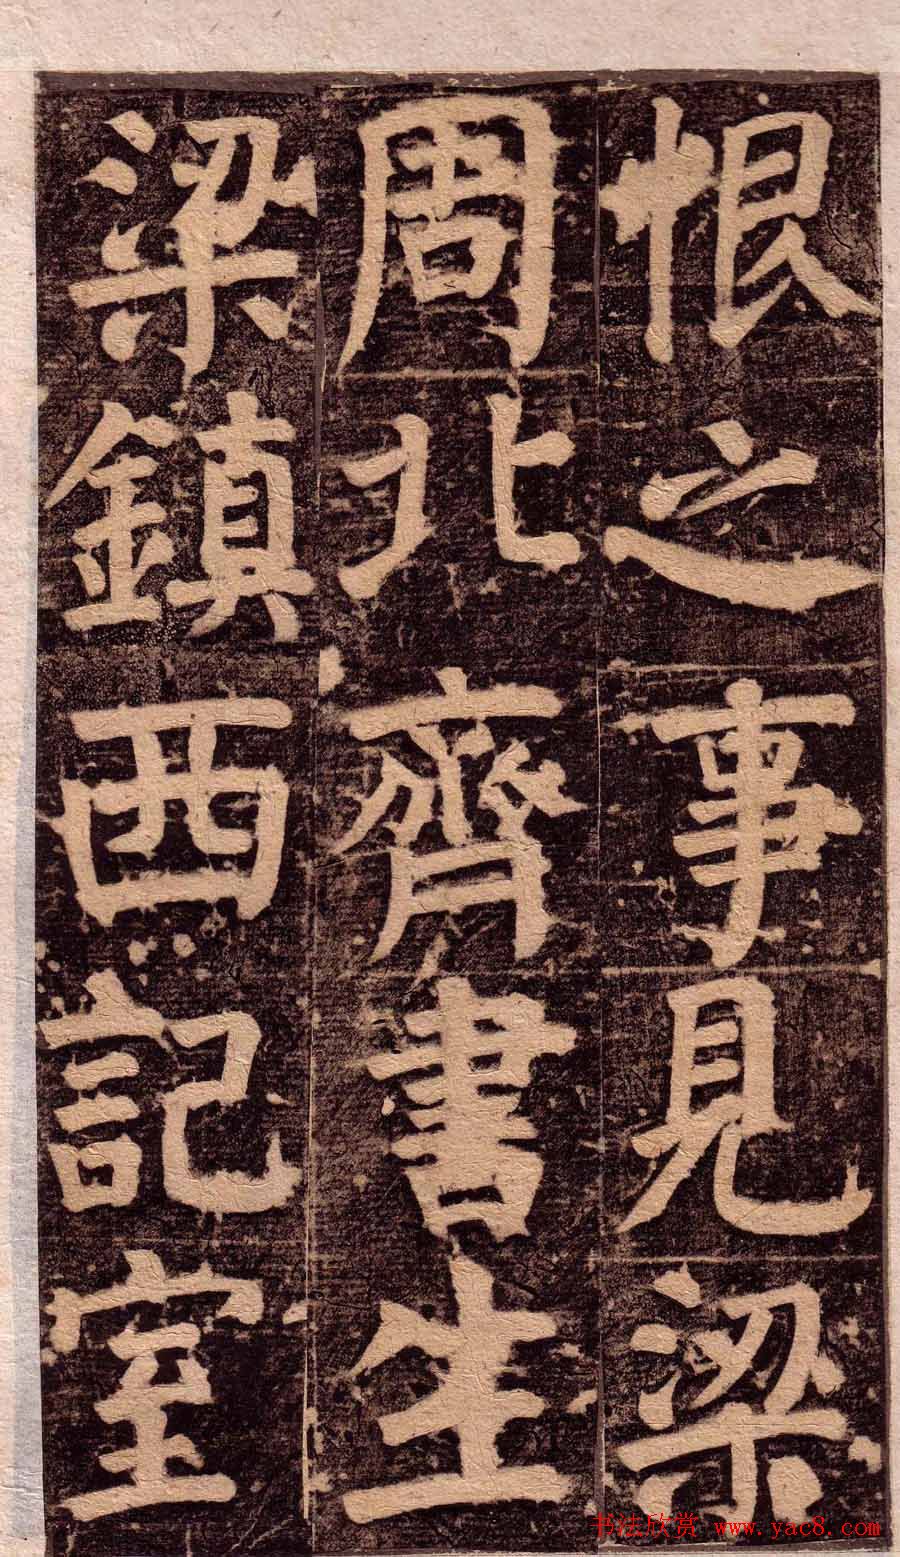 恨之事見梁
周北齊書生
梁鎮西記室
书法欣赏 www.yac8.com